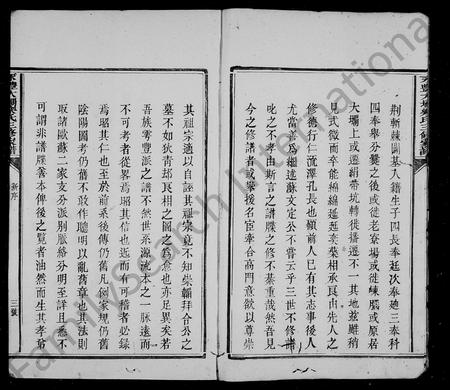 荆斬棘闢基入籍生子四長奉廷次奉廸三奉科
四奉舉分㸑之後或徙老寮場或徙練腦或原居
大壩上或遷絹帶坑轉徙播遷不一其地玆雖稍
見式微而卒能綿綿延延奕葉相承良由先人之
修德行仁流澤孔長也顧前人已有其志事後人
尤當善爲繼述蘇文定公不嘗云乎三世不修譜
吡之不孝由斯言之譜牒之修不綦重哉然吾見
今之修譜者或攀援名宦牽合高門意欲以尊崇
其祖宗適以自誣其祖宗竟不知崇韜拜合公之
墓不如狄青却良相之圖之爲愈也亦足異矣若
吾族雩豐派之譜不然世系源流本之一脉遠而
不可考者從畧焉昭其信也邇而有可稽者必錄
焉昭其仁也至於前系後傳仍舊凡例家規仍舊
陰陽圖考仍舊不敢作聰明以亂舊章也其法則
取諸歐蘇二家支分派別脈絡分明至詳且悉不
可謂非譜牒善本俾後之覽者油然而生其孝弟
新序
三號
FamilySearch International